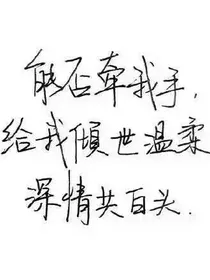 能否牵我手,
给我傾世温柔
深情共百头.